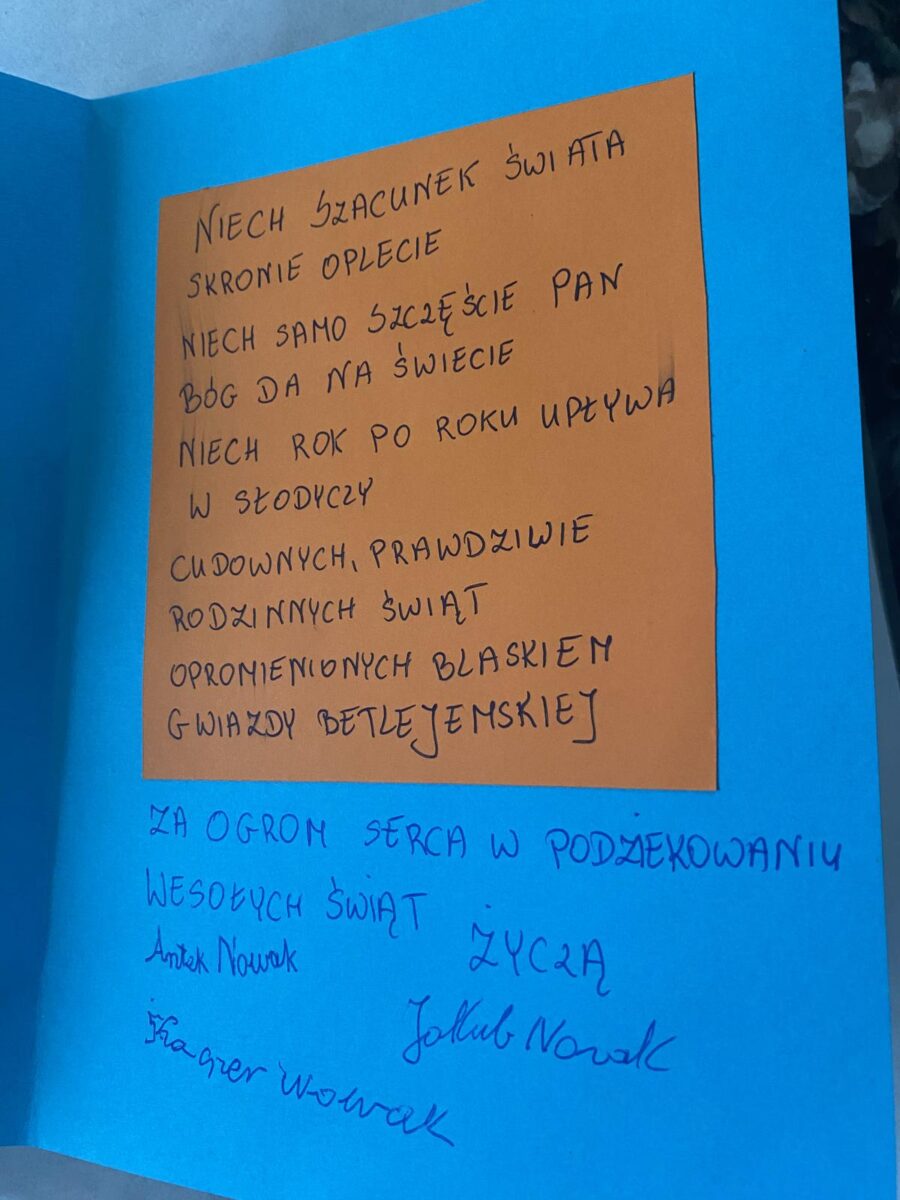 NIECH SZACUNEK ŚWIATA
SKRONIE OPLECIE
NIECH SAMO SZCZĘŚCIE PAN
BÓG DA NA ŚWIECIE
NIECH ROK PO ROKU UPŁYWA
W SŁODYCZY
CUDOWNYCH, PRAWDZIWIE
RODZINNYCH ŚWIĄT
OPROMIENIONYCH BLASKIEM
GWIAZDY BETLEJEMSKIEJ
ZA OGROM SERCA W PODZIEKOWANIU
WESOŁYCH ŚWIĄT
ŻYCZĄ
Antek Nowak
Jakub Nowak
Kacper Nowak